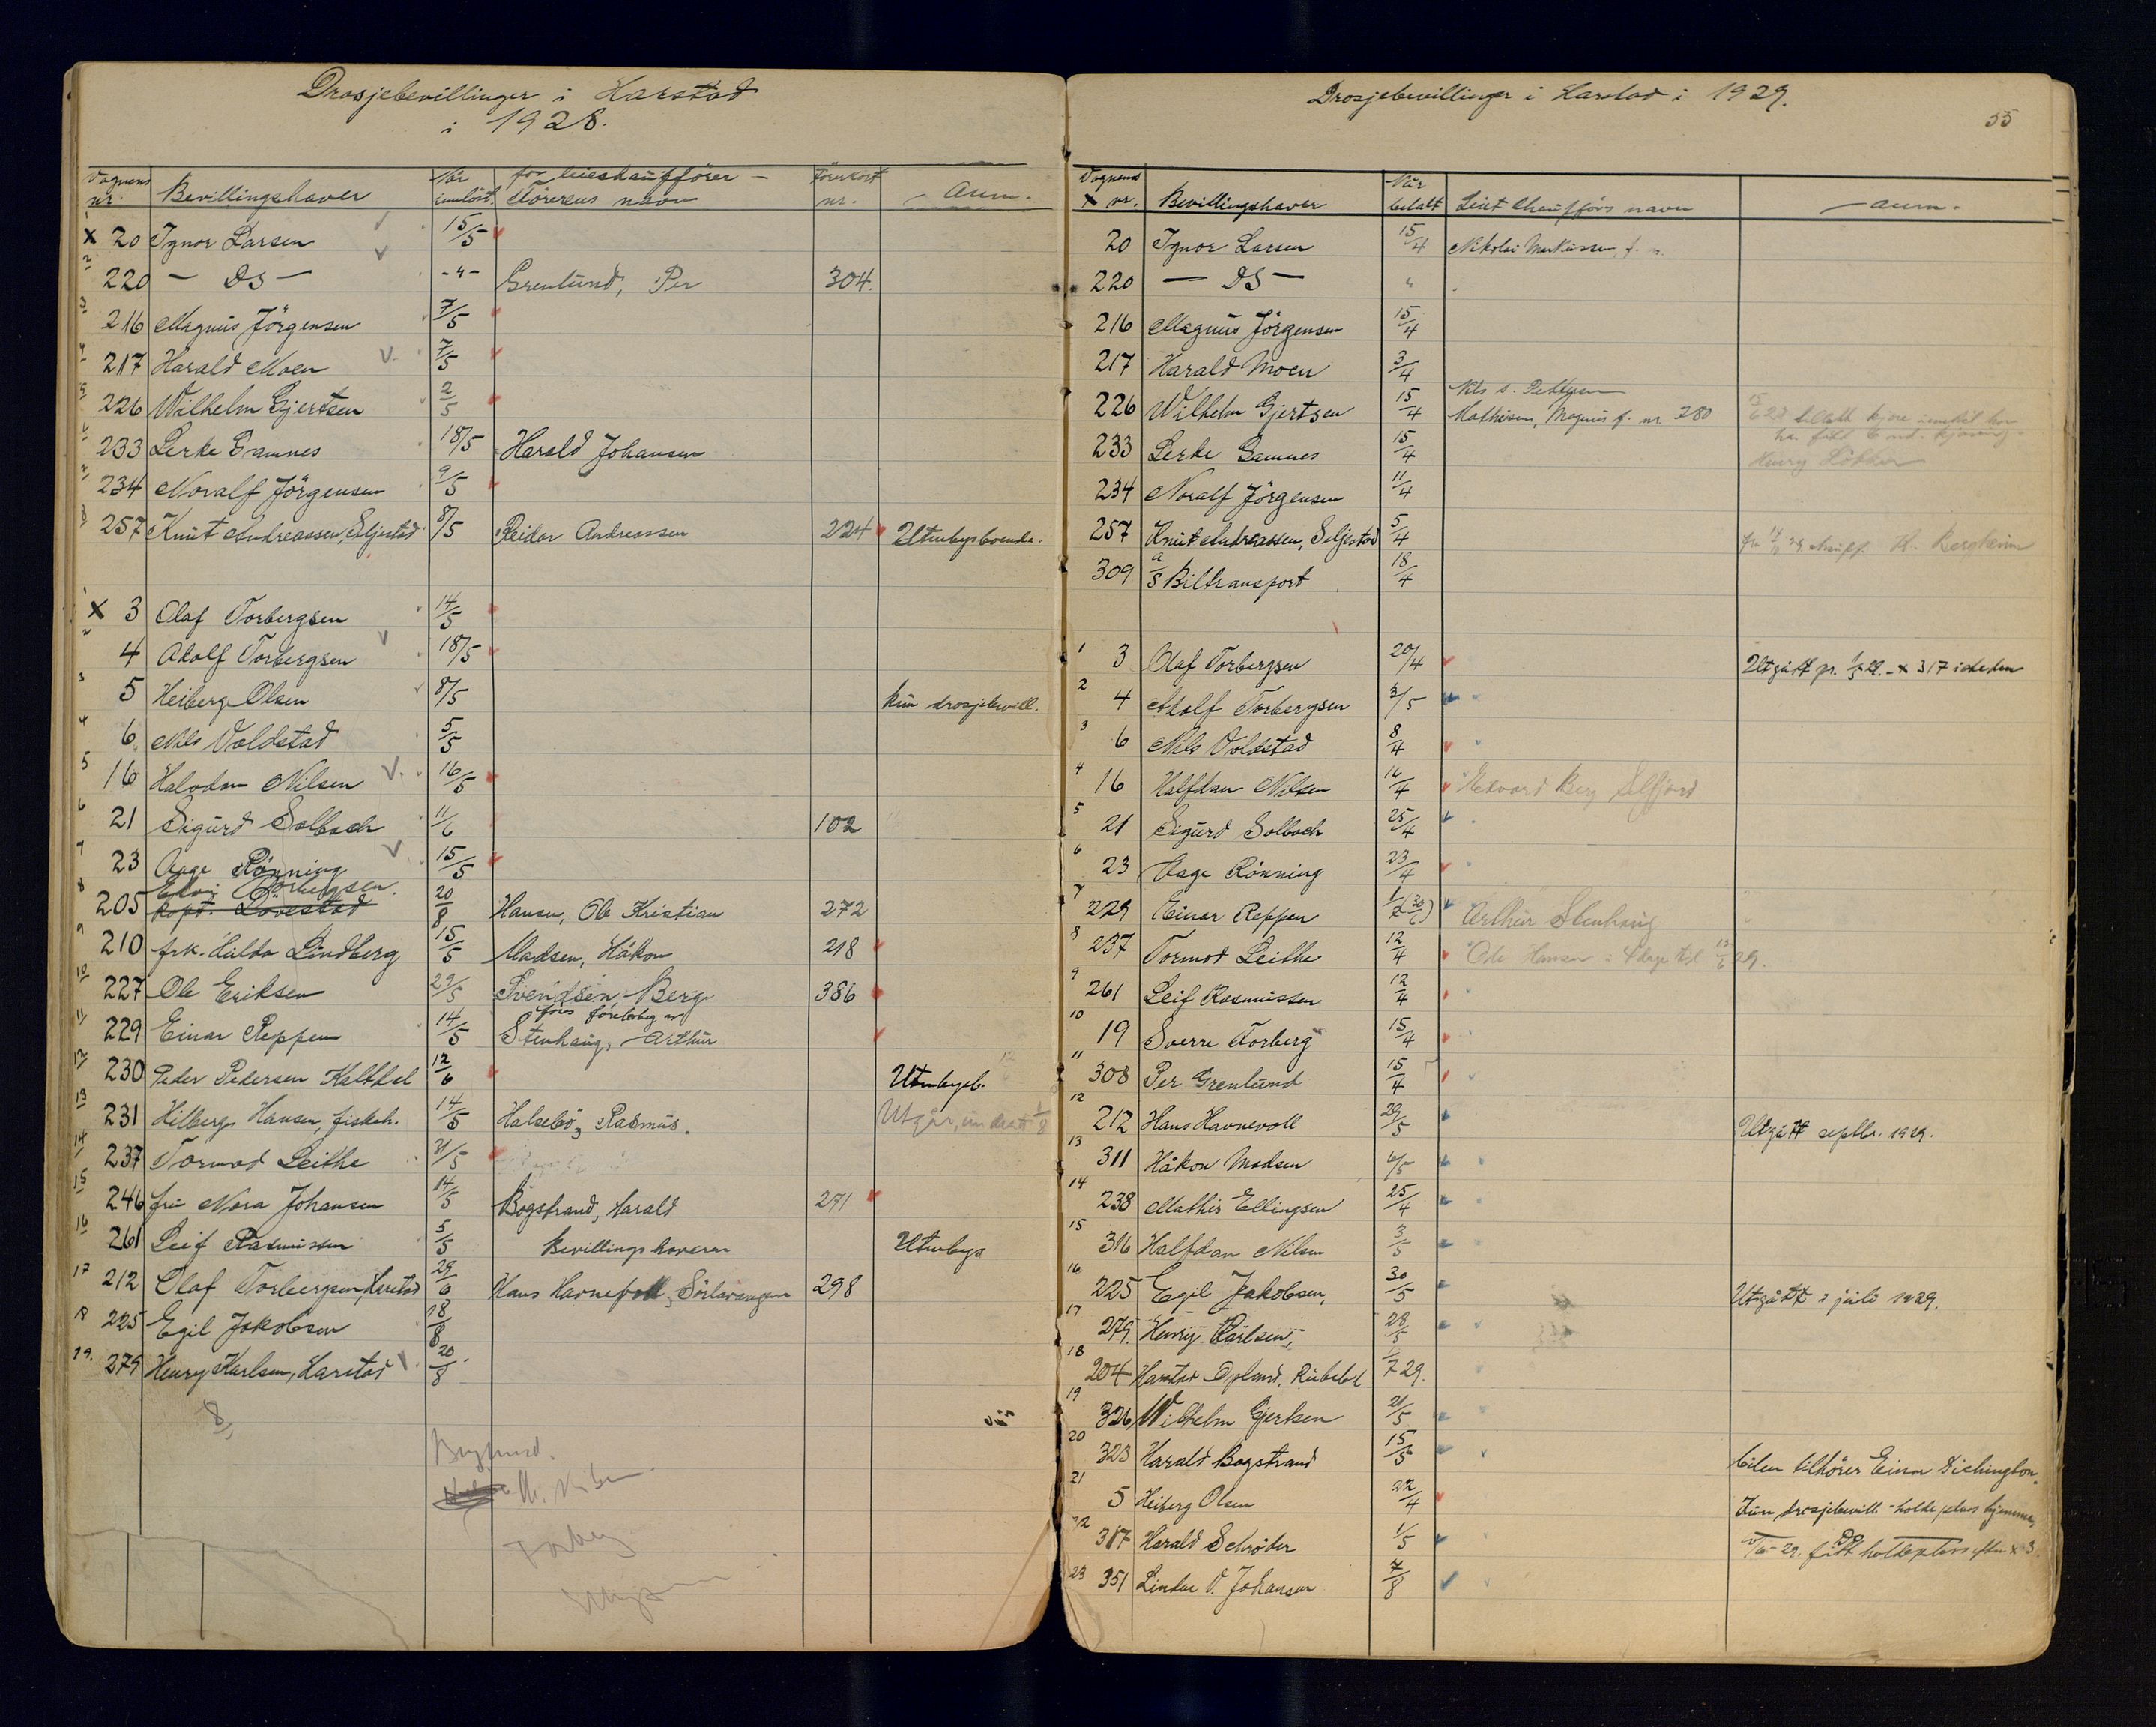 Drosjebevillinger i Harstad
i 1928.
Vognens nr. Bevillingshaver Når innlöst. for leiechaufförer - Förerens navn Förerkort nr. Anm.
1 x 20 Ignor Larsen 15/5
2 220 - DS - -"- Grenlund, Per 304.
3 216 Magnus Jörgensen 7/5
4 217 Harald Moen 7/5
5 226 Wilhelm Gjertsen 2/5
6 233 Lerke Gamnes 18/5 Harald Johansen
7 234 Noralf Jörgensen 9/5
8 257 Knut Andreassen, Seljestad 8/5 Reidar Andreassen 224 Utenbysboende.
1 x 3 Olaf Torbergsen 14/5
2 4 Adolf Torbergsen 18/5
3 5 Heiberg Olsen 8/5 kun drosjebevill.
4 6 Nils Voldstad 5/5
5 16 Halvdan Nilsen 16/5
6 21 Sigurd Solbach 11/6 102
7 23 Aage Rönning 15/5
Edvin Torbergsen.
8 205 kapt. Lövestad 20/8 Hansen, Ole Kristian 272
9 210 frk. Hulda Lindberg 15/5 Madsen, Håkon 218
10 227 Ole Eriksen 29/5 Svendsen, Berg 386
11 229 Einar Reppen 14/5 Stenhaug, Arthur
12 230 Peder Pedersen Kalthol 12/6 Utenbysb.
13 231 Hilberg Hansen, fiskeh. 14/5 Halsebö, Rasmus. Utgår, 1/8
14 237 Tormod Leithe 21/5
15 246 fru Nora Johansen 14/5 Bogstrand, Harald 271
16 261 Leif Rasmussen 5/5 Bevillingshaveren Utenbys
17 212 Olaf Torbergsen, Harstad 29/6 Hans Havnevoll, Sörlavangen 298
18 225 Egil Jakobsen 18/8
19. 279 Henry Karlsen, Harstad 20/8
8
Torberg
Drosjebevillinger i Harstad i 1929.
55
Vognens x nr. Bevillingshaver Når betalt Leiet Chaufförs navn Anm.
20 Ignor Larsen 15/4 Nikolai Markussen, f. n.
220 - DS - "
216 Magnus Jörgensen 15/4
217 Harald Moen 3/4
Nils s. Pettersen
226 Wilhelm Gjertsen 15/4 Mathisen, Magnus f. nr. 280
233 Lerke Gamnes 15/4 Henry
234 Noralf Jörgensen 11/4
257 Knut Andreassen, Seljestad 5/4 fra 14/11 29 chauff. K. Bergheim
309 A/S Biltransport 18/4
1 3 Olaf Torbergsen 20/4 Utgått pr. 1/5 29. - x 317 isteden
2 4 Adolf Torbergsen 3/5
3 6 Nils Voldstad 8/4
4 16 Halfdan Nilsen 16/4 Edvard Berg Selfjord
5 21 Sigurd Solbach 25/4
6 23 Aage Rönning 23/4
7 229 Einar Reppen Arthur Stenhaug
8 237 Tormod Leithe 12/4 Ole Hansen i 4 dage til 12/6 29.
9 261 Leif Rasmussen 12/4
10 19 Sverre Torberg 15/4
11 308 Per Grenlund 15/4
12 212 Hans Havnevoll 29/5 Utgått septbr. 1929.
13 311 Håkon Madsen 6/5
14 238 Mathis Ellingsen 25/4
15 316 Halfdan Nilsen 3/5
16 225 Egil Jakobsen, 30/5 Utgått i juli 1929.
17 279. Henry Carlsen, 28/5
18 204 Harstad Oplands Rutebil 7 29.
19 326 Wilhelm Gjertsen 21/5
20 323 Harald Bogstrand 15/5 bilen tilhörer Einar Dichington.
21 5 Heiberg Olsen 22/4 Kun drosjebevill - holde plass hjemme,
22 317 Harald Schröder 1/5 29. fått holdeplass efter x 3
23 351 Lindar V. Johansen 7/8